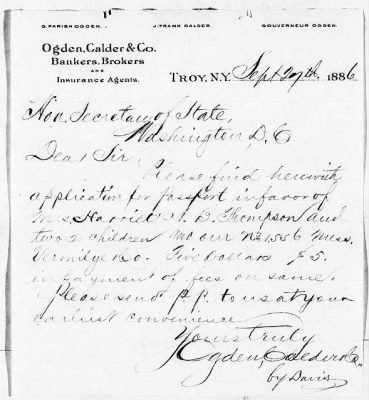 G. PARISH OGDEN. J. FRANK CALDER. GOUVERNEUR OGDEN.
Ogden, Calder & Co.
Bankers, Brokers
AND
Insurance Agents.
TROY, N.Y. Sept 27th. 1886
Hon. Secretary of State,
Washington D, C
Dear Sir
Please find herewith
application for passport in favor of
Mrs. Harriet B. Thompson and
two 2 children our No 1556
Vermilye & Co. Five Dollars $5.
in payment of fees on same.
Please send P.P. to us at your
earliest convenience
Yours truly
Ogden, Calder & Co.
by Davis